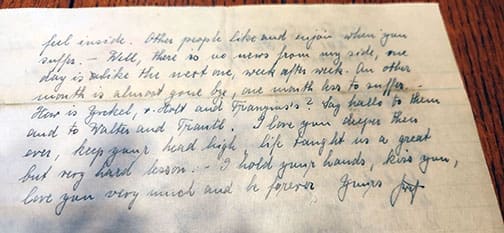 feel inside. Other people like and enjoy when you
suffer. – Well, there is no news from my side, one
day is alike the next one, week after week. An other
month is almost gone bye, one month less to suffer.
How is Yockel, + Holt and ? Say hallo to them
and to Walter and Trautl. I love you deeper then
ever, keep your head high, life taught us a great
but very hard lesson. – I hold your hands, kiss you,
love you very much and be forever, Yours